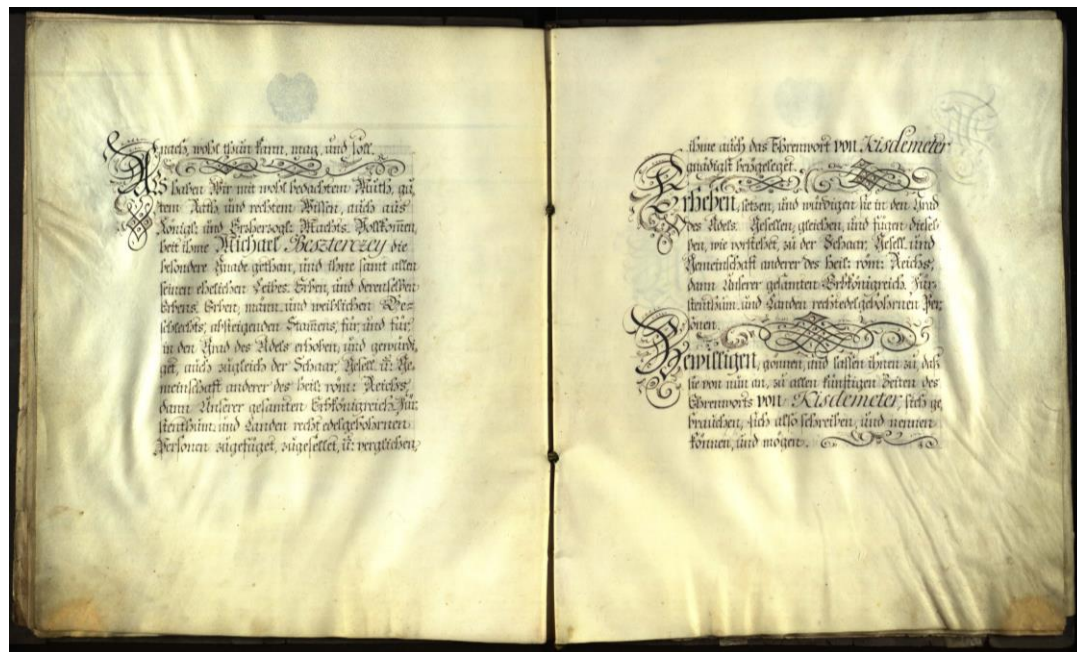 nach, wohl thun kann, mag, und soll.
Als haben Wir mit wohl bedachtem Muth, gu
tem Rath, und rechtem Wissen, auch aus
Königl: und Erzherzogl: Machts-Vollkom̅en,
heit ihme Michael Beszterczey die
besondere Gnade gethan, und Ihne samt allen
seinen ehelichen Leibes-Erben, und derenselben
Erbens-Erben, mann- und weiblichen Ge-
schlechts, absteigenden Stam̅ens, für, und für,
in den Grad des Adels erhoben, und gewürdi,
get, auch zugleich der Schaar, Gesell- u: Ge,
meinschaft anderer des heil: röm: Reichs,
dann Unserer gesamten Erbkönigreich, Für,
stenthum- und Landen recht edelgebohrnen
Personen zugefüget, zugesellet, u: verglichen,
ihme auch das Ehrenwort von Kisdemeter
gnädigst beygeleget.
Erheben, setzen, und würdigen sie in den Grad
des Adels. Gesellen, gleichen, und fügen diesel-
ben, wie vorstehet, zu der Schaar, Gesell- und
Gemeinschaft anderer des Heil: röm: Reichs,
dann Unserer gesamten Erbkönigreich, Für-
stenthum- und Landen rechtedelgebohrnen Per,
sonen.
Bewilligen, gönnen, und lassen ihnen zu, daß
sie von nun an, zu allen künftigen Zeiten des
Ehrenworts von Kisdemeter, sich ge,
brauchen, sich also schreiben, und nennen
können, und mögen.